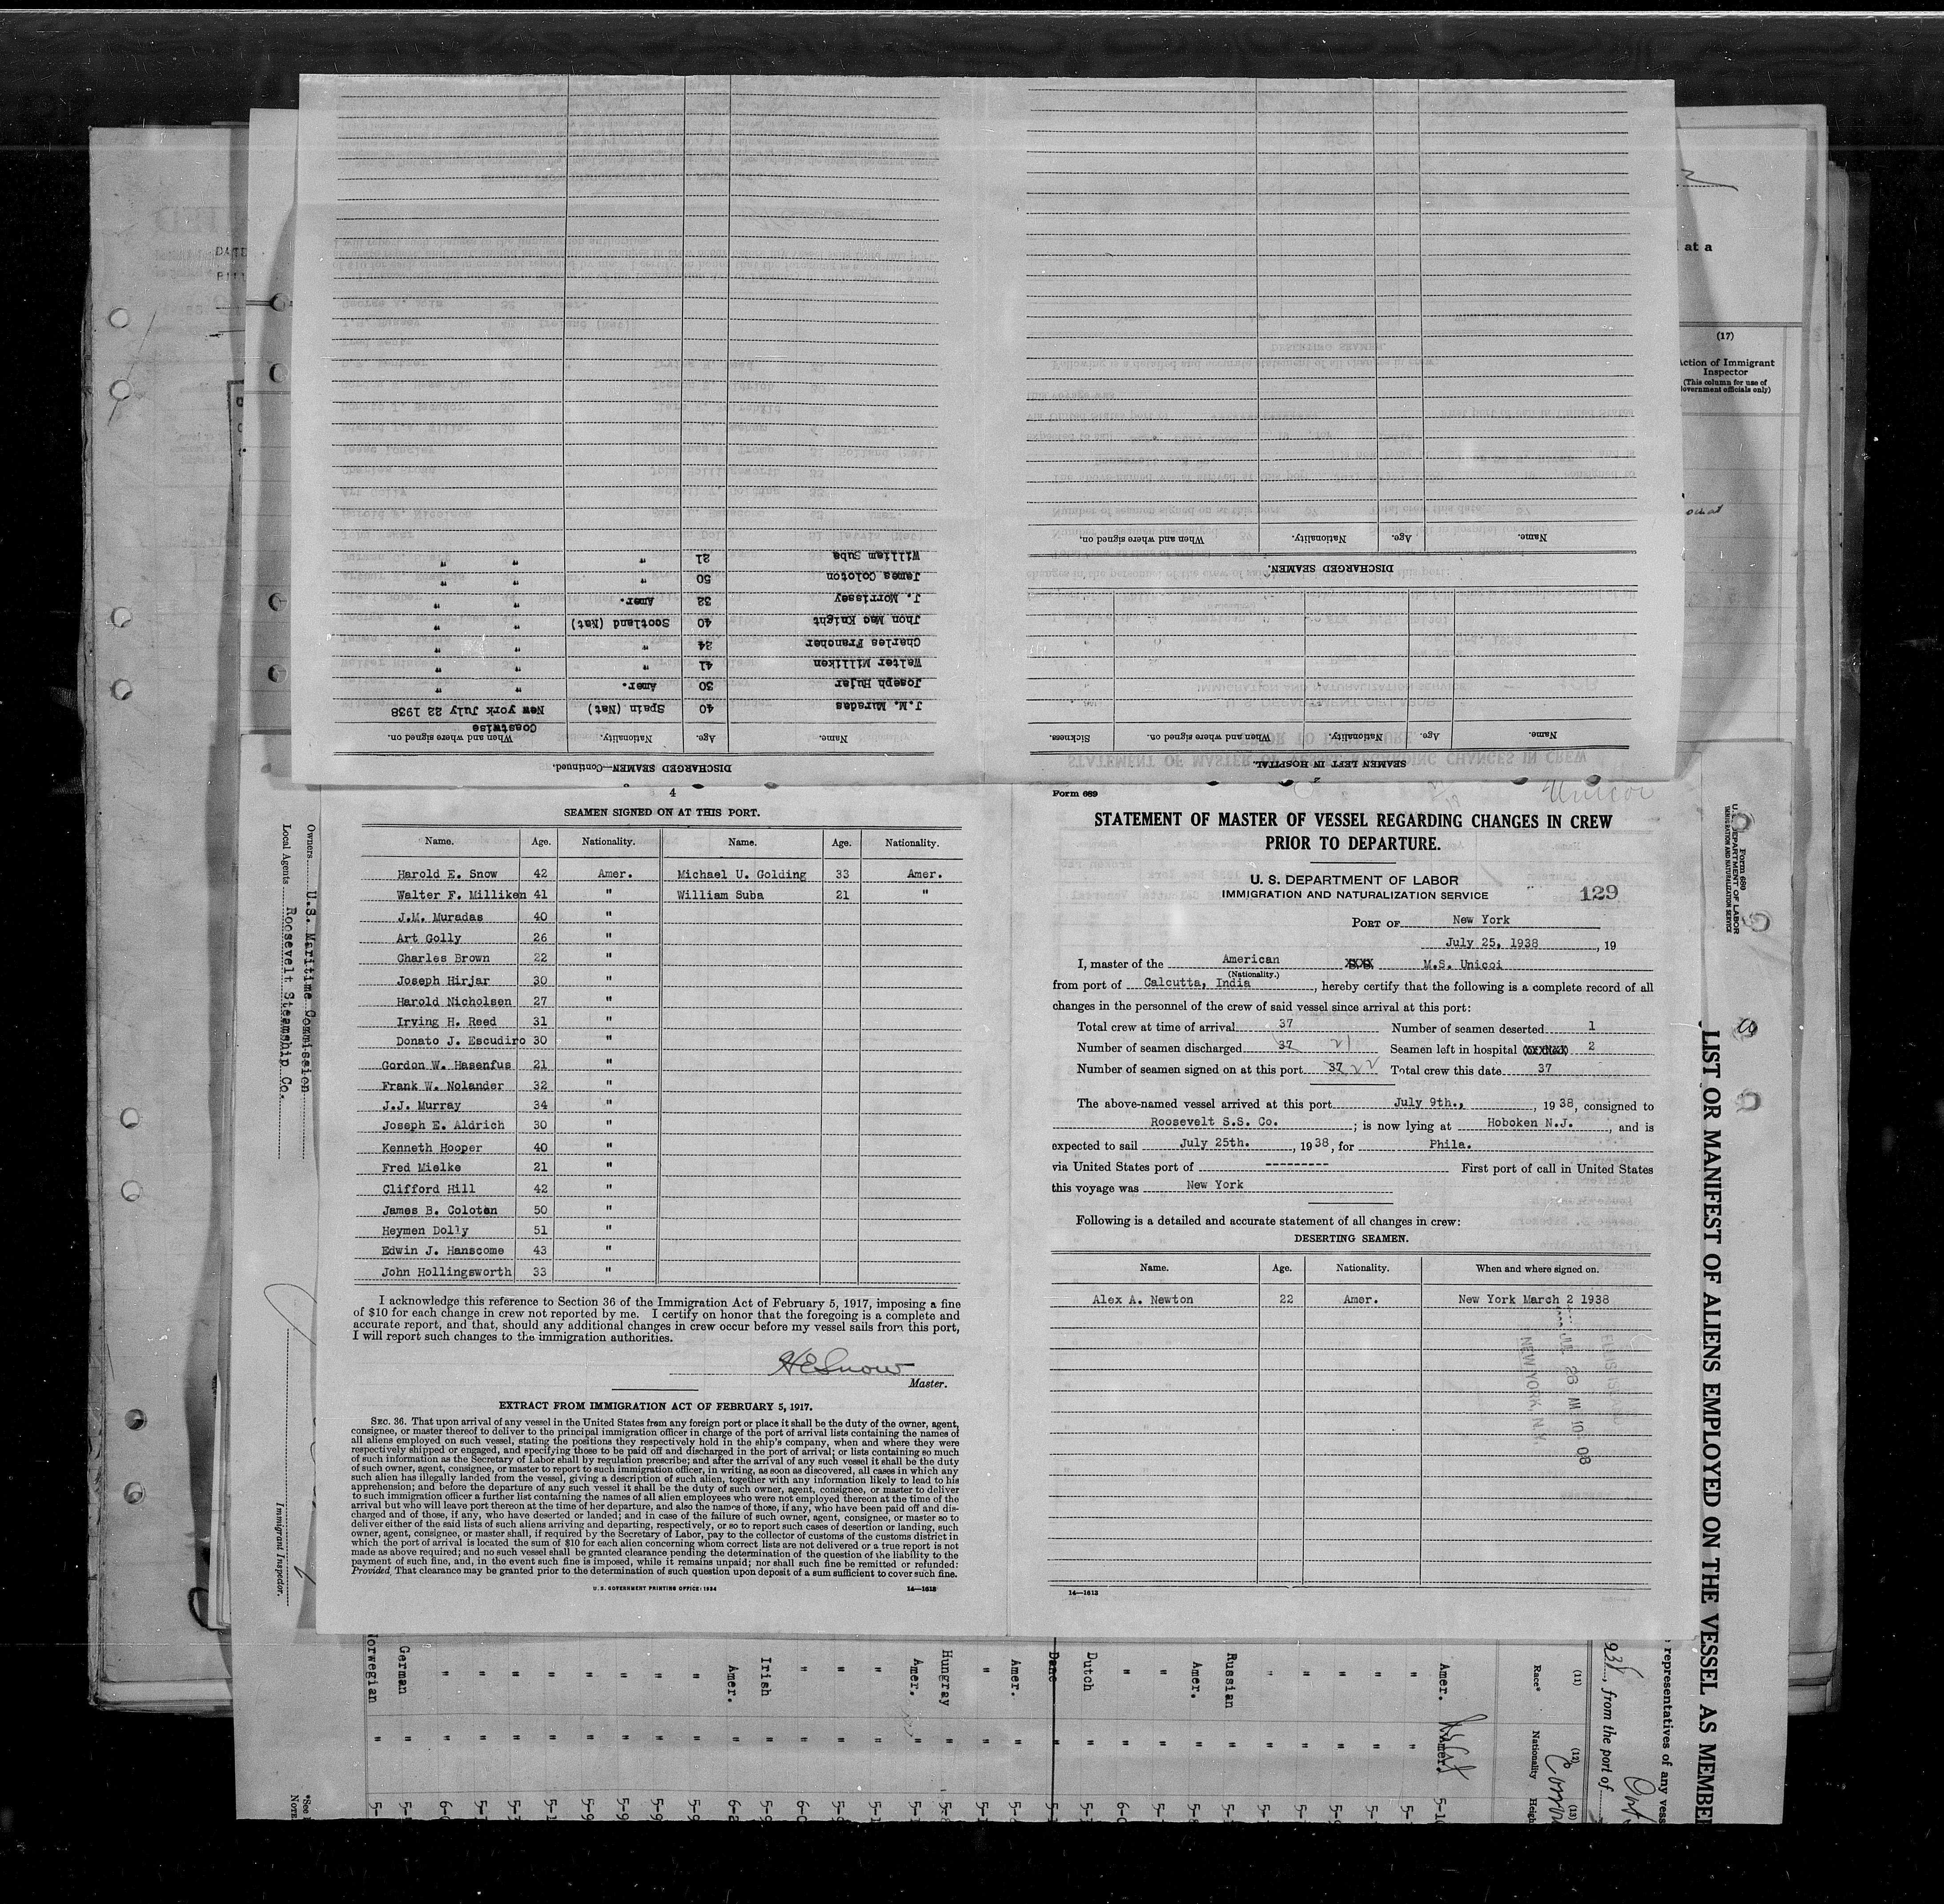 DISCHARGED SEAMEN—Continued.
Name. Age. Nationality. When and where signed on.
Coastwise
J.M. Muradas 40 Spain (Nat) New York July 22 1938
Joseph Hujar 30 Amer. " "
Walter Milliken 41 " " "
Charles Francher 24 " " "
Jhon Mac Knight 40 Scotland (Nat) " "
J. Morrissey 32 Amer. " "
James Coloton 50 " " "
William Suba 21 " " "
2
SEAMEN LEFT IN HOSPITAL.
Name. Age. Nationality. When and where signed on. Sickness.
DISCHARGED SEAMEN.
Name. Age. Nationality. When and where signed on.
4
SEAMEN SIGNED ON AT THIS PORT.
Name. Age. Nationality. Name. Age. Nationality.
Harold E. Snow 42 Amer. Michael U. Golding 33 Amer.
Walter F. Milliken 41 " William Suba 21 "
J.M. Muradas 40 "
Art Golly 26 "
Charles Brown 22 "
Joseph Hirjar 30 "
Harold Nicholsen 27 "
Irving H. Reed 31 "
Donato J. Escudiro 30 "
Gordon W. Hasenfus 21 "
Frank W. Nolander 32 "
J.J. Murray 34 "
Joseph E. Aldrich 30 "
Kenneth Hooper 40 "
Fred Mielke 21 "
Clifford Hill 42 "
James B. Coloton 50 "
Heymen Dolly 51 "
Edwin J. Hanscome 43 "
John Hollingsworth 33 "
I acknowledge this reference to Section 36 of the Immigration Act of February 5, 1917, imposing a fine
of $10 for each change in crew not reported by me. I certify on honor that the foregoing is a complete and
accurate report, and that, should any additional changes in crew occur before my vessel sails from this port,
I will report such changes to the immigration authorities.
HESnow
Master.
EXTRACT FROM IMMIGRATION ACT OF FEBRUARY 5, 1917.
SEC. 36. That upon arrival of any vessel in the United States from any foreign port or place it shall be the duty of the owner, agent,
consignee, or master thereof to deliver to the principal immigration officer in charge of the port of arrival lists containing the names of
all aliens employed on such vessel, stating the positions they respectively hold in the ship's company, when and where they were
respectively shipped or engaged, and specifying those to be paid off and discharged in the port of arrival; or lists containing so much
of such information as the Secretary of Labor shall by regulation prescribe; and after the arrival of any such vessel it shall be the duty
of such owner, agent, consignee, or master to report to such immigration officer, in writing, as soon as discovered, all cases in which any
such alien has illegally landed from the vessel, giving a description of such alien, together with any information likely to lead to his
apprehension; and before the departure of any such vessel it shall be the duty of such owner, agent, consignee, or master to deliver
to such immigration officer a further list containing the names of all alien employees who were not employed thereon at the time of the
arrival but who will leave port thereon at the time of her departure, and also the names of those, if any, who have been paid off and dis-
charged and of those, if any, who have deserted or landed; and in case of the failure of such owner, agent, consignee, or master so to
deliver either of the said lists of such aliens arriving and departing, respectively, or so to report such cases of desertion or landing, such
owner, agent, consignee, or master shall, if required by the Secretary of Labor, pay to the collector of customs of the customs district in
which the port of arrival is located the sum of $10 for each alien concerning whom correct lists are not delivered or a true report is not
made as above required; and no such vessel shall be granted clearance pending the determination of the question of the liability to the
payment of such fine, and, in the event such fine is imposed, while it remains unpaid; nor shall such fine be remitted or refunded:
Provided, That clearance may be granted prior to the determination of such question upon deposit of a sum sufficient to cover such fine.
U. S. GOVERNMENT PRINTING OFFICE: 1934 14—1613
Form 689
Unicoi
STATEMENT OF MASTER OF VESSEL REGARDING CHANGES IN CREW
PRIOR TO DEPARTURE.
U. S. DEPARTMENT OF LABOR
IMMIGRATION AND NATURALIZATION SERVICE
129
PORT OF New York
July 25, 1938, 19
I, master of the American S.S. M.S. Unicoi
(Nationality.)
from port of Calcutta, India, hereby certify that the following is a complete record of all
changes in the personnel of the crew of said vessel since arrival at this port:
Total crew at time of arrival 37 Number of seamen deserted 1
Number of seamen discharged 37 21 Seamen left in hospital 2
Number of seamen signed on at this port 37 22 Total crew this date 37
The above-named vessel arrived at this port July 9th., 1938, consigned to
Roosevelt S.S. Co.; is now lying at Hoboken N.J., and is
expected to sail July 25th., 1938, for Phila.
via United States port of ---------- First port of call in United States
this voyage was New York
Following is a detailed and accurate statement of all changes in crew:
DESERTING SEAMEN.
Name. Age. Nationality. When and where signed on.
Alex A. Newton 22 Amer. New York March 2 1938
ELLIS ISLAND
JUL 26 AM 10 08
NEW YORK, N.Y.
14—1613
Owners U.S. Maritime Commission
Local Agents Roosevelt Steamship Co.
Immigrant Inspector.
at a
(17)
Action of Immigrant
Inspector
(This column for use of
Government officials only)
Form 689
U. S. DEPARTMENT OF LABOR
IMMIGRATION AND NATURALIZATION SERVICE
LIST OR MANIFEST OF ALIENS EMPLOYED ON THE VESSEL AS MEMBE
representatives of any vess
, from the port of
(11)
Race*
(12)
Nationality
(13)
Heigh
Amer.
"
"
"
"
"
Russian
Amer.
"
"
Dutch
Dane
Amer.
"
Hungray
Amer.
"
"
"
Irish
Amer.
"
"
"
"
"
"
"
"
German
orwegian